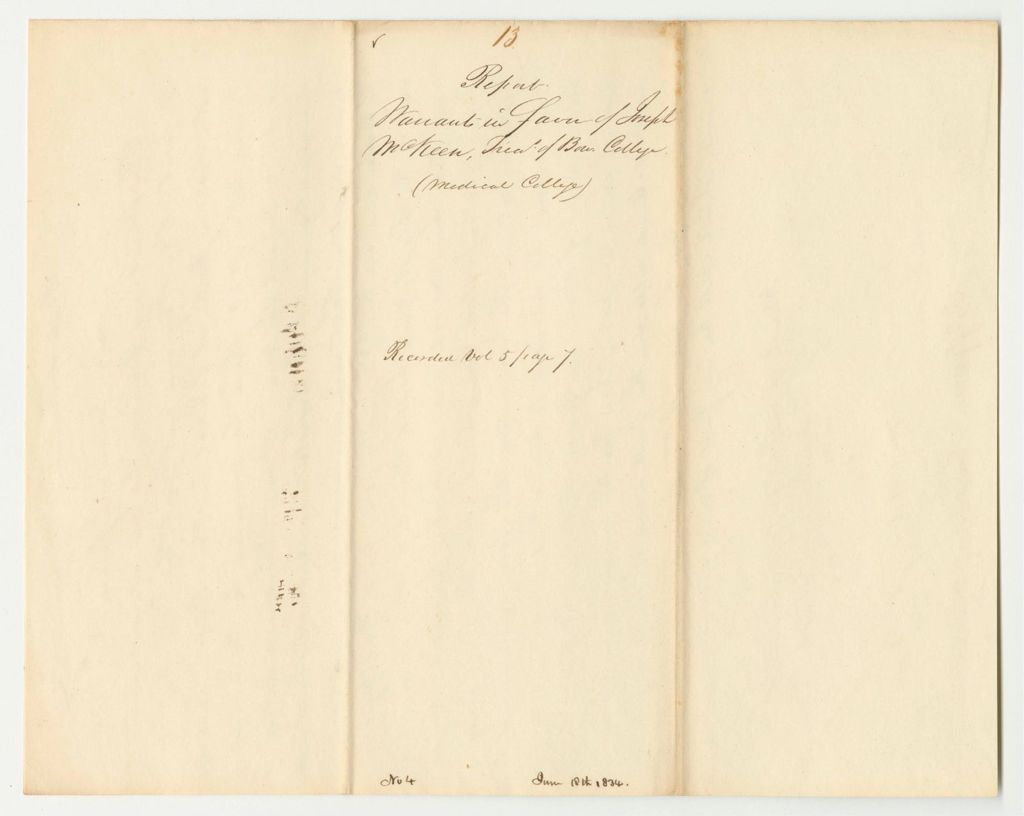 13
Report
Warrant in favor of Joseph
McKeen, Treasr of Bow. College.
(Medical College)
Recorded Vol 5 page 7.
No 4
June 18th 1834.